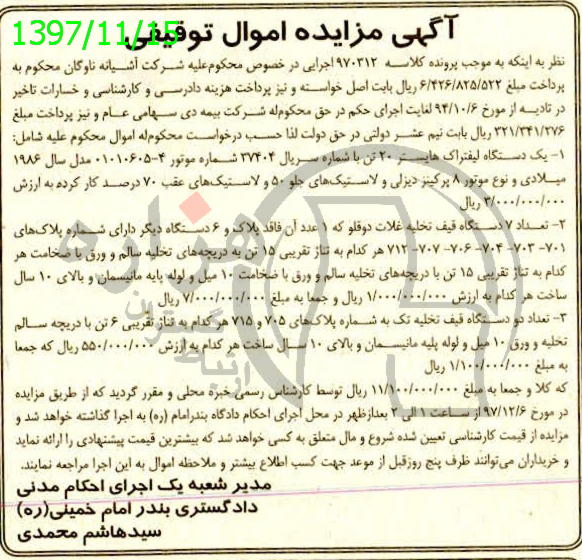 آگهی مزایده اموال توقیفی
1397/11/15
نظر به اینکه به موجب پرونده کلاسه ۹۷۰۳۱۲ اجرایی در خصوص محکوم‌علیه شرکت آشیانه ناوگان محکوم به
پرداخت مبلغ ۶/۴۲۶/۸۲۵/۵۲۲ ریال بابت اصل خواسته و نیز پرداخت هزینه دادرسی و کارشناسی و خسارات تاخیر
در تادیه از مورخ ۹۴/۱۰/۶ لغایت اجرای حکم در حق محکوم‌له شرکت بیمه دی سهامی عام و نیز پرداخت مبلغ
۳۲۱/۳۴۱/۲۷۶ ریال بابت نیم عشر دولتی در حق دولت لذا حسب درخواست محکوم‌له اموال محکوم علیه شامل:
۱- یک دستگاه لیفتراک هایستر ۲۰ تن با شماره سریال ۳۷۴۰۴ شماره موتور ۴-۰۱۰۱۰۶۰۵ مدل سال ۱۹۸۶
میلادی و نوع موتور ۸ پرکینز دیزلی و لاستیک‌های جلو ۵۰ و لاستیک‌های عقب ۷۰ درصد کار کرده به ارزش
۳/۰۰۰/۰۰۰/۰۰۰ ریال
۲- تعداد ۷ دستگاه قیف تخلیه غلات دوقلو که ۱ عدد آن فاقد پلاک و ۶ دستگاه دیگر دارای شماره پلاک‌های
۷۰۱- ۷۰۳- ۷۰۴- ۷۰۶- ۷۰۷- ۷۱۲ هر کدام به تناژ تقریبی ۱۵ تن به دریچه‌های تخلیه سالم و ورق با ضخامت هر
کدام به تناژ تقریبی ۱۵ تن با دریچه‌های تخلیه سالم و ورق با ضخامت ۱۰ میل و لوله پایه مانیسمان و بالای ۱۰ سال
ساخت هر کدام به ارزش ۱/۰۰۰/۰۰۰/۰۰۰ ریال و جمعا به مبلغ ۷/۰۰۰/۰۰۰/۰۰۰ ریال
۳- تعداد دو دستگاه قیف تخلیه تک به شماره پلاک‌های ۷۰۵ و ۷۱۵ هر کدام به تناژ تقریبی ۶ تن با دریچه سالم
تخلیه و ورق ۱۰ میل و لوله پلیه مانیسمان و بالای ۱۰ سال ساخت هر کدام به ارزش ۵۵۰/۰۰۰/۰۰۰ ریال که جمعا
به مبلغ ۱/۱۰۰/۰۰۰/۰۰۰ ریال
که کلا و جمعا به مبلغ ۱۱/۱۰۰/۰۰۰/۰۰۰ ریال توسط کارشناس رسمی خبره محلی و مقرر گردید که از طریق مزایده
در مورخ ۹۷/۱۲/۶ از ساعت ۱ الی ۲ بعدازظهر در محل اجرای احکام دادگاه بندرامام (ره) به اجرا گذاشته خواهد شد و
مزایده از قیمت کارشناسی تعیین شده شروع و مال متعلق به کسی خواهد شد که بیشترین قیمت پیشنهادی را ارائه نماید
و خریداران می‌توانند ظرف پنج روزقبل از موعد جهت کسب اطلاع بیشتر و ملاحظه اموال به این اجرا مراجعه نمایند.
مدیر شعبه یک اجرای احکام مدنی
دادگستری بندر امام خمینی(ره)
سیدهاشم محمدی